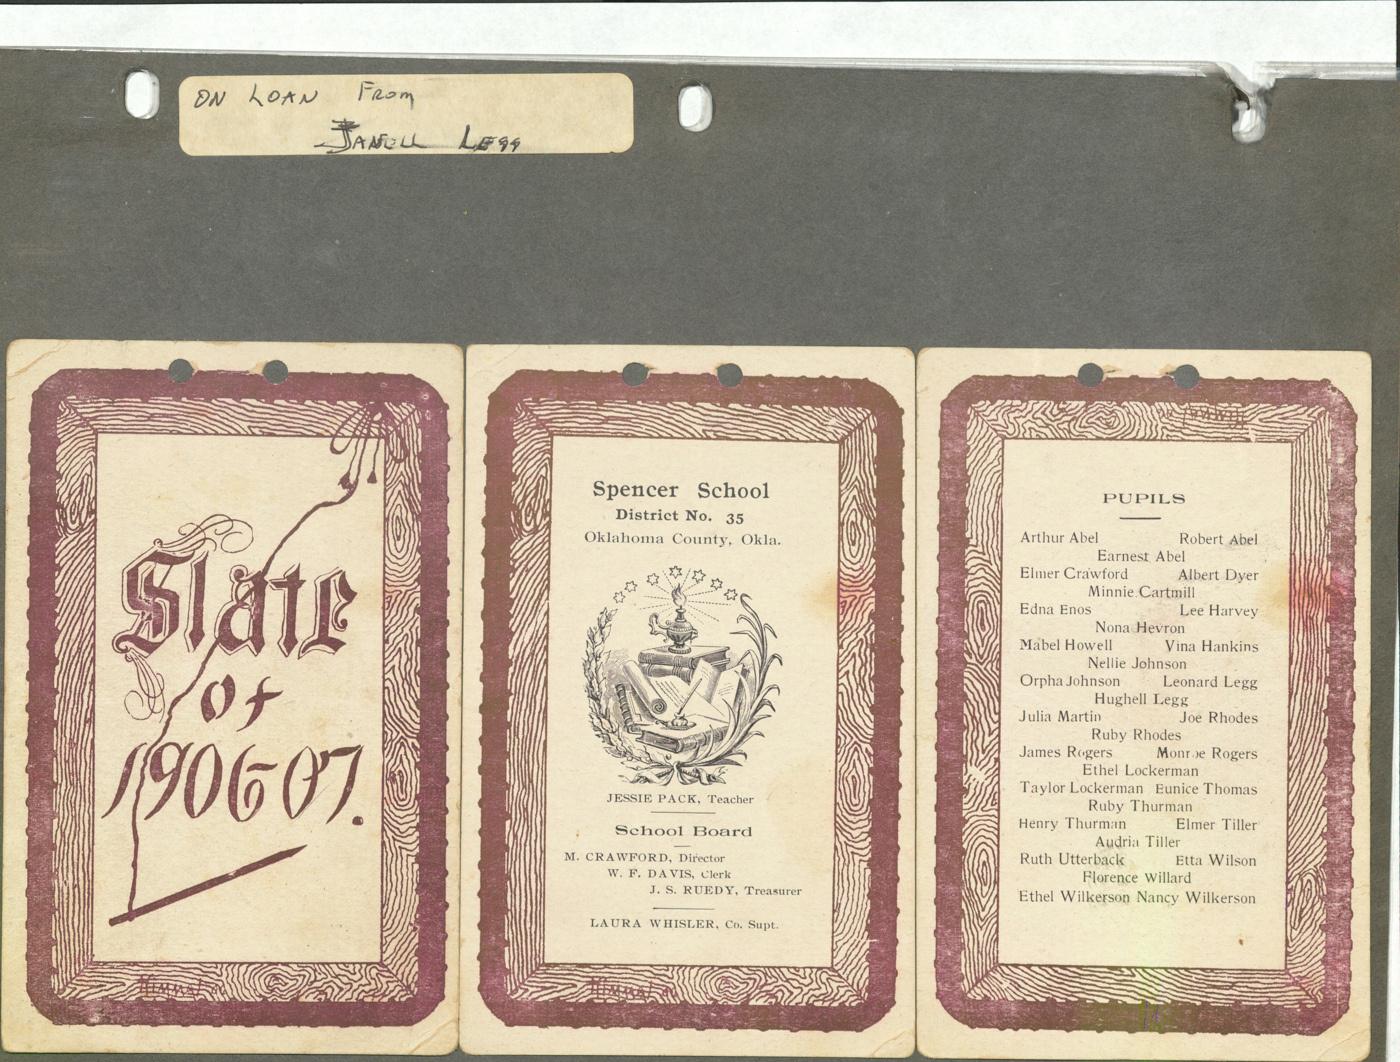 ON LOAN From
JANELL LEgg
Slate
of
1906-07.
Spencer School
District No. 35
Oklahoma County, Okla.
JESSIE PACK, Teacher
School Board
M. CRAWFORD, Director
W. F. DAVIS, Clerk
J. S. RUEDY, Treasurer
LAURA WHISLER, Co. Supt.
PUPILS
Arthur Abel Robert Abel
Earnest Abel
Elmer Crawford Albert Dyer
Minnie Cartmill
Edna Enos Lee Harvey
Nona Hevron
Mabel Howell Vina Hankins
Nellie Johnson
Orpha Johnson Leonard Legg
Hughell Legg
Julia Martin Joe Rhodes
Ruby Rhodes
James Rogers Monroe Rogers
Ethel Lockerman
Taylor Lockerman Eunice Thomas
Ruby Thurman
Henry Thurman Elmer Tiller
Audria Tiller
Ruth Utterback Etta Wilson
Florence Willard
Ethel Wilkerson Nancy Wilkerson